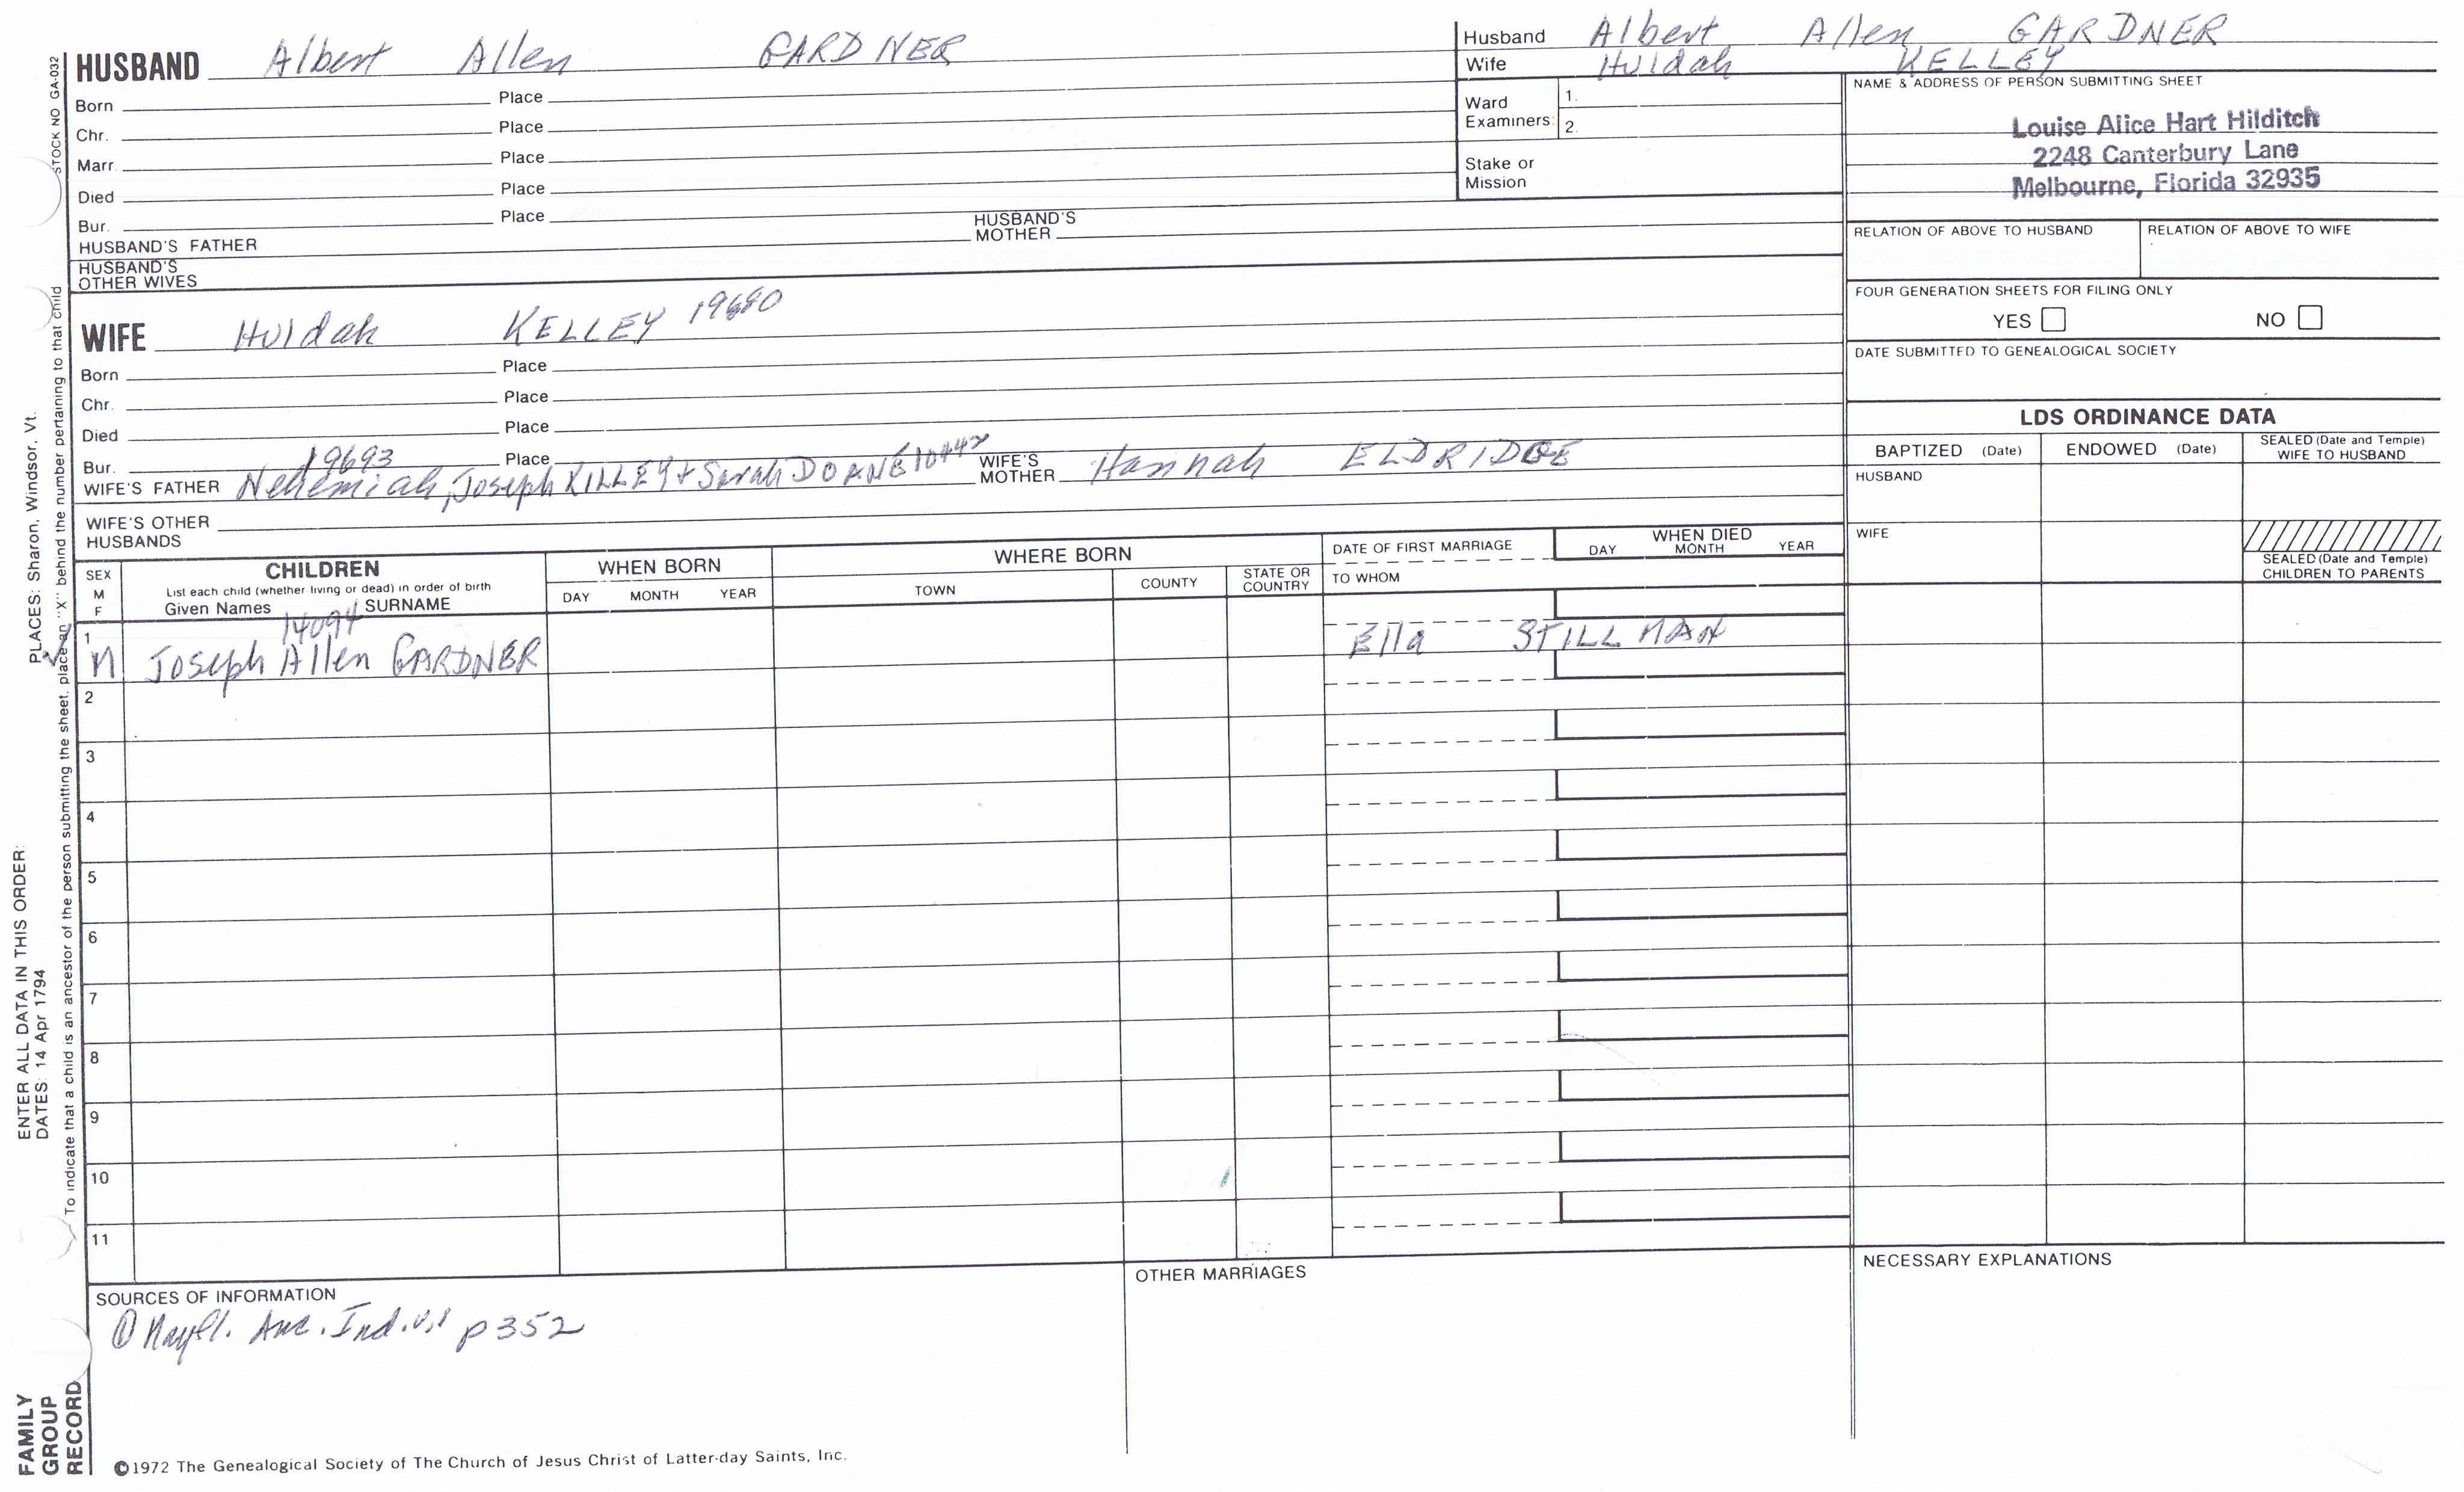 HUSBAND Albert Allen GARDNER
Born Place
Chr. Place
Marr. Place
Died Place
Bur. Place
HUSBAND'S FATHER HUSBAND'S MOTHER
HUSBAND'S OTHER WIVES
Husband Albert Allen GARDNER
Wife Huldah KELLEY
Ward Examiners: 1.
2.
Stake or Mission
NAME & ADDRESS OF PERSON SUBMITTING SHEET
Louise Alice Hart Hilditch
2248 Canterbury Lane
Melbourne, Florida 32935
RELATION OF ABOVE TO HUSBAND RELATION OF ABOVE TO WIFE
FOUR GENERATION SHEETS FOR FILING ONLY
YES NO
DATE SUBMITTED TO GENEALOGICAL SOCIETY
WIFE Huldah KELLEY
Born Place
Chr. Place
Died Place
Bur. Place
19693
WIFE'S FATHER Nehemiah, Joseph KILLEY + Sarah DOANE WIFE'S MOTHER Hannah ELDRIDGE
WIFE'S OTHER HUSBANDS
LDS ORDINANCE DATA
BAPTIZED (Date) ENDOWED (Date) SEALED (Date and Temple) WIFE TO HUSBAND
HUSBAND
WIFE
SEALED (Date and Temple) CHILDREN TO PARENTS
SEX M F
CHILDREN
List each child (whether living or dead) in order of birth
Given Names SURNAME
WHEN BORN
DAY MONTH YEAR
WHERE BORN
TOWN COUNTY STATE OR COUNTRY
DATE OF FIRST MARRIAGE
TO WHOM
WHEN DIED
DAY MONTH YEAR
14094
1 M Joseph Allen GARDNER Ella STILLMAN
2
3
4
5
6
7
8
9
10
11
SOURCES OF INFORMATION
① Mayfl. Anc. Ind. v.1 p352
OTHER MARRIAGES
NECESSARY EXPLANATIONS
©1972 The Genealogical Society of The Church of Jesus Christ of Latter-day Saints, Inc.
STOCK NO GA-032
To indicate that a child is an ancestor of the person submitting the sheet, place an "X" behind the number pertaining to that child
PLACES: Sharon, Windsor, Vt.
ENTER ALL DATA IN THIS ORDER:
DATES: 14 Apr 1794
FAMILY
GROUP
RECORD